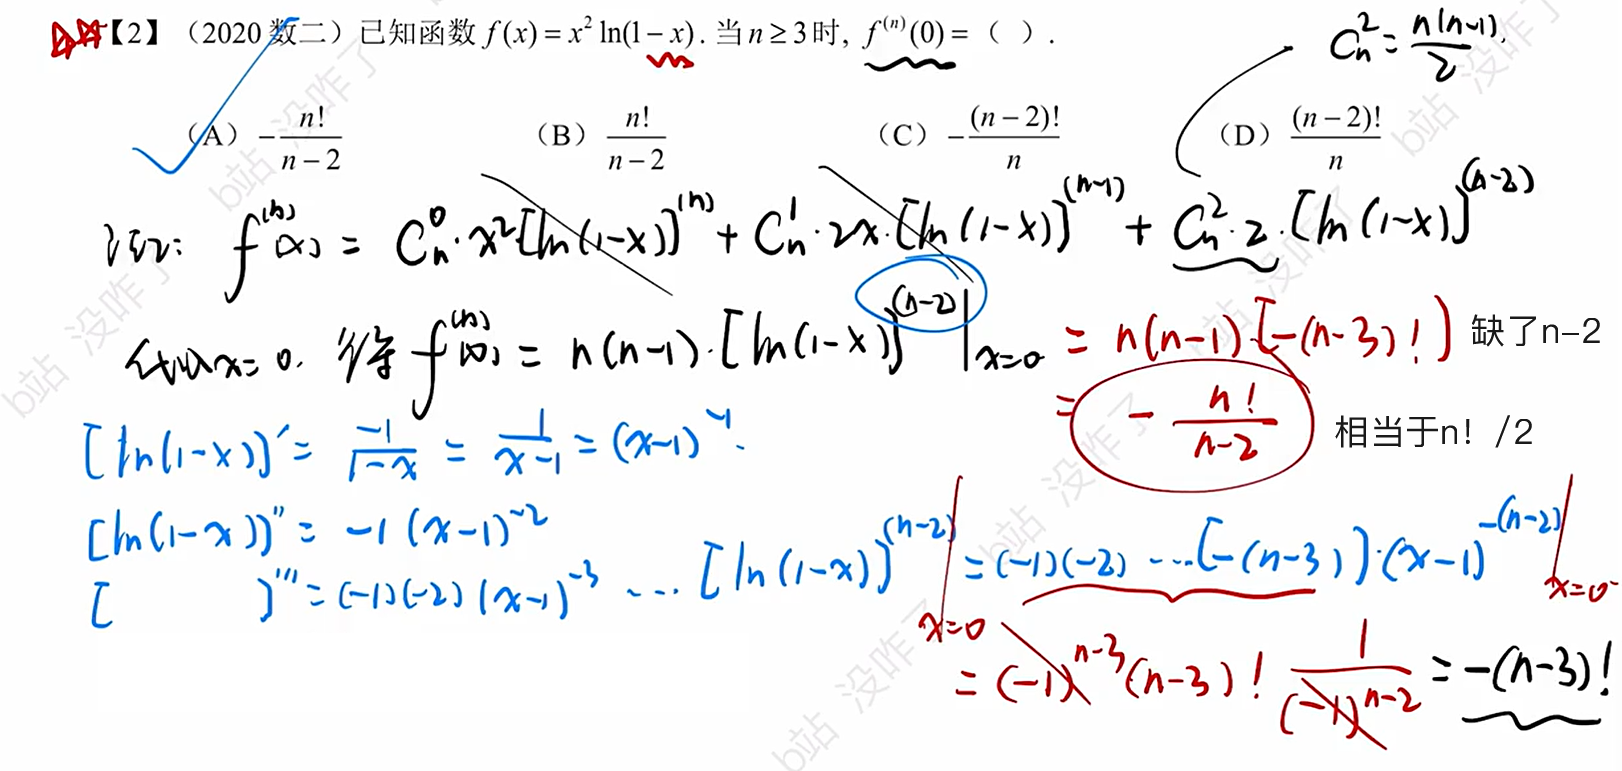 【2】（2020 数二）已知函数 f(x) = x² ln(1 − x). 当 n ≥ 3 时, f⁽ⁿ⁾(0) = （ ）.
C_n^2 = n(n-1)/2.
（A）−n!/(n − 2) （B）n!/(n − 2) （C）−(n − 2)!/n （D）(n − 2)!/n
f^(n)(x) = C_n^0·x²[ln(1-x)]^(n) + C_n^1·2x·[ln(1-x)]^(n-1) + C_n^2·2·[ln(1-x)]^(n-2)
代入x=0, 得 f^(n)(0) = n(n-1)·[ln(1-x)]^(n-2)|x=0 = n(n-1)·[-(n-3)!] 缺了n-2
= - n!/(n-2) 相当于n！/2
[ln(1-x)]' = -1/(1-x) = 1/(x-1) = (x-1)^-1.
[ln(1-x)]'' = -1(x-1)^-2
[ ]''' = (-1)(-2)(x-1)^-3 ... [ln(1-x)]^(n-2)|x=0 = (-1)(-2)...[-(n-3)]·(x-1)^-(n-2)|x=0
= (-1)^n-3 (n-3)! 1/(-1)^n-2 = -(n-3)!
b站 没咋了
b站 没咋了
b站 没咋了
b站 没咋了
b站 没咋了
b站 没咋了